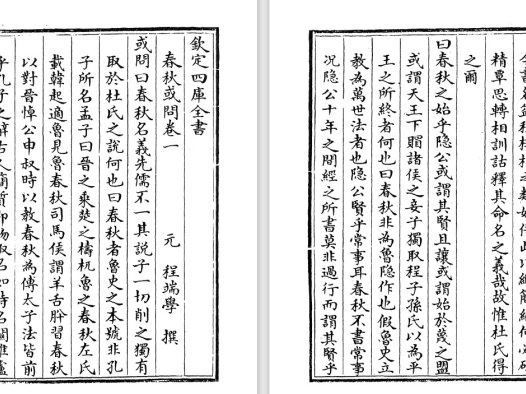 欽定四庫全書
春秋或問卷一 元 程端學 撰
或問曰春秋名義先儒不一其說子一切削之獨有
取於杜氏之說何也曰春秋者魯史之本號非孔
子所名孟子曰晉之乘楚之檮杌魯之春秋左氏
載韓起適魯見魯春秋司馬侯謂羊舌肸習春秋
以對晉悼公申叔時以教春秋為傳太子法皆前
乎孔子之辭古人簡質即物取名如詩名關雎
精覃思轉相訓詁釋其命名之義哉故惟杜氏得
之爾
曰春秋之始乎隐公或謂其賢且讓或謂始於蔑之盟
或謂天王下賵諸侯之妾子獨取程子孫氏以為平
王之所終者何也曰春秋非為魯隐作也假魯史立
教為萬世法者也隐公賢乎常事耳春秋不書常事
况隐公十年之間經之所書莫非過行而謂其賢乎